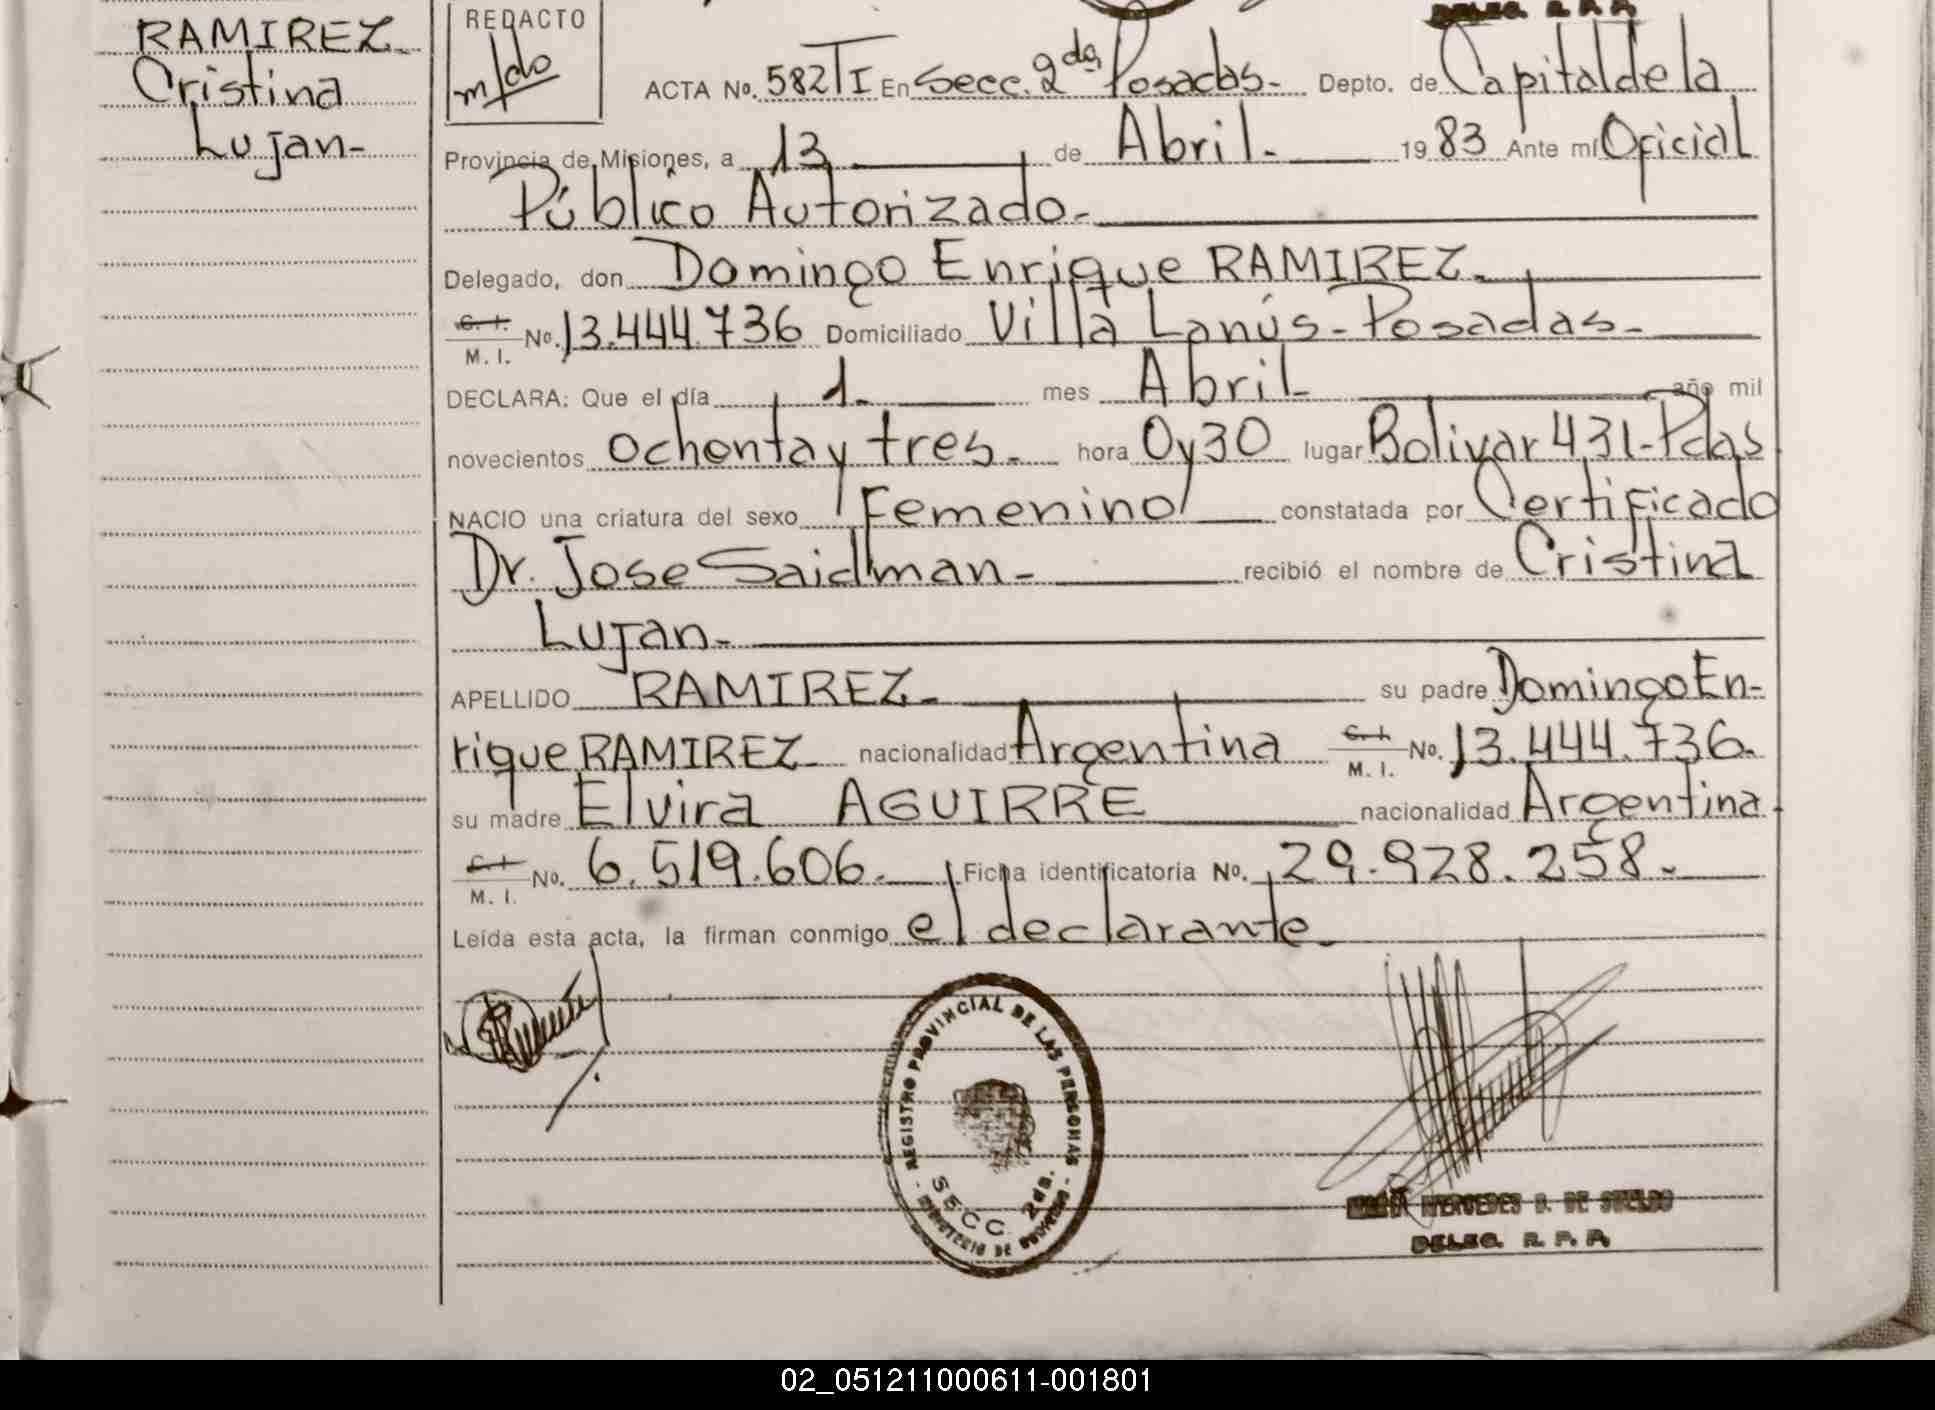 RAMIREZ
Cristina
Lujan-
REDACTO
ACTA No. 582 TI En Secc. 2da Posadas- Depto. de Capital de la
Provincia de Misiones, a 13 de Abril. 1983 Ante mí Oficial
Público Autorizado.-
Delegado, don Domingo Enrique RAMIREZ.
C. I. M. I. No. 13.444.736 Domiciliado Villa Lanús-Posadas-
DECLARA: Que el día 1. mes Abril año mil
novecientos ochenta y tres. hora 0y30 lugar Bolivar 431-Pdas
NACIO una criatura del sexo Femenino constatada por Certificado
Dr. Jose Saidman- recibió el nombre de Cristina
Lujan-
APELLIDO RAMIREZ- su padre Domingo En-
rique RAMIREZ nacionalidad Argentina C. I. M. I. No. 13.444.736.
su madre Elvira AGUIRRE nacionalidad Argentina
C. I. M. I. No. 6.519.606. Ficha identificatoria No. 29.928.258.
Leída esta acta, la firman conmigo el declarante.
REGISTRO PROVINCIAL DE LAS PERSONAS
SECC. 2da.
MINISTERIO DE GOBIERNO
MERCEDES DE
DELEG. R. P. P.
02_051211000611-001801